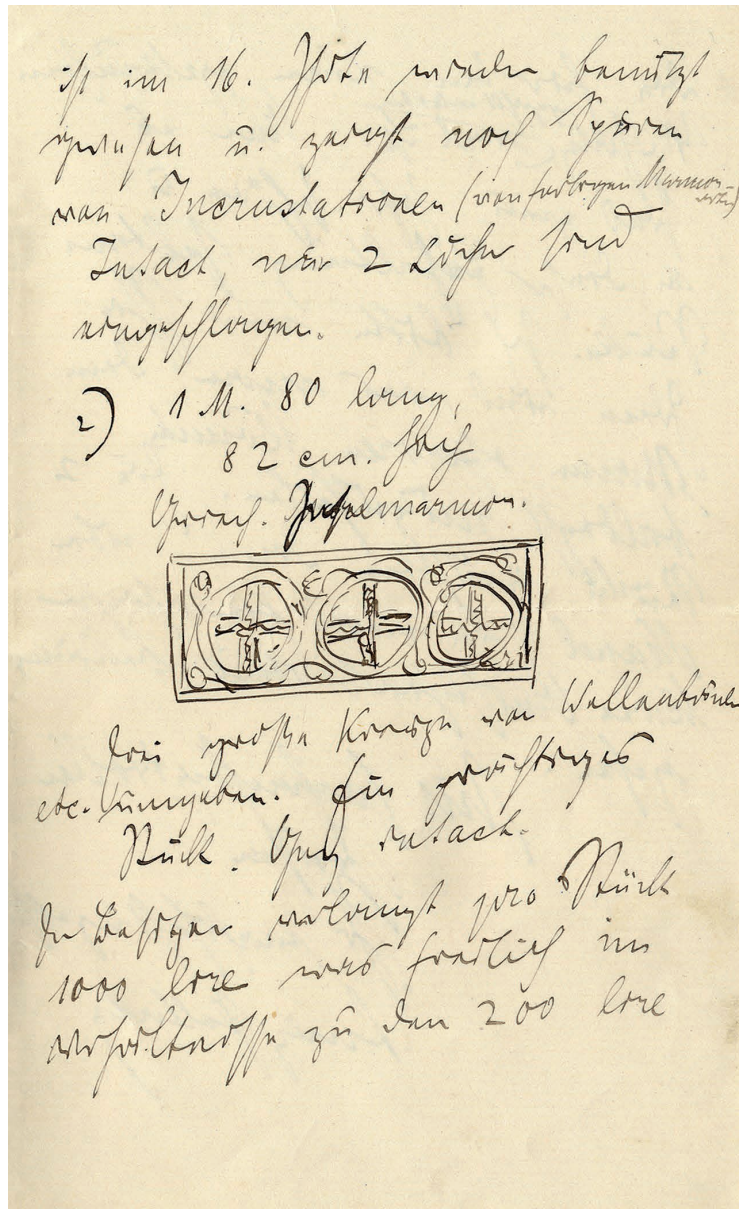 ist im 16. Jhdte wieder benützt
gewesen u. zeigt noch Spuren
von Incrustationen (von farbigen Marmor-
Intact, nur 2 Löcher sind
eingeschlagen.
2) 1 M. 80 lang,
82 cm. hoch
Griech. Inselmarmor.
Drei große Kreuze von Wellenbändern
etc. umgeben. Ein prächtiges
Stück. Ganz intact.
Der Besitzer verlangt pro Stück
1000 lire was freilich im
Verhältnisse zu den 200 lire